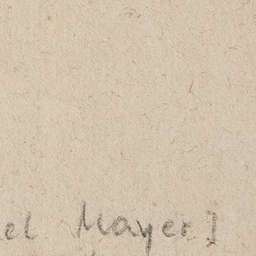 el Mayer]